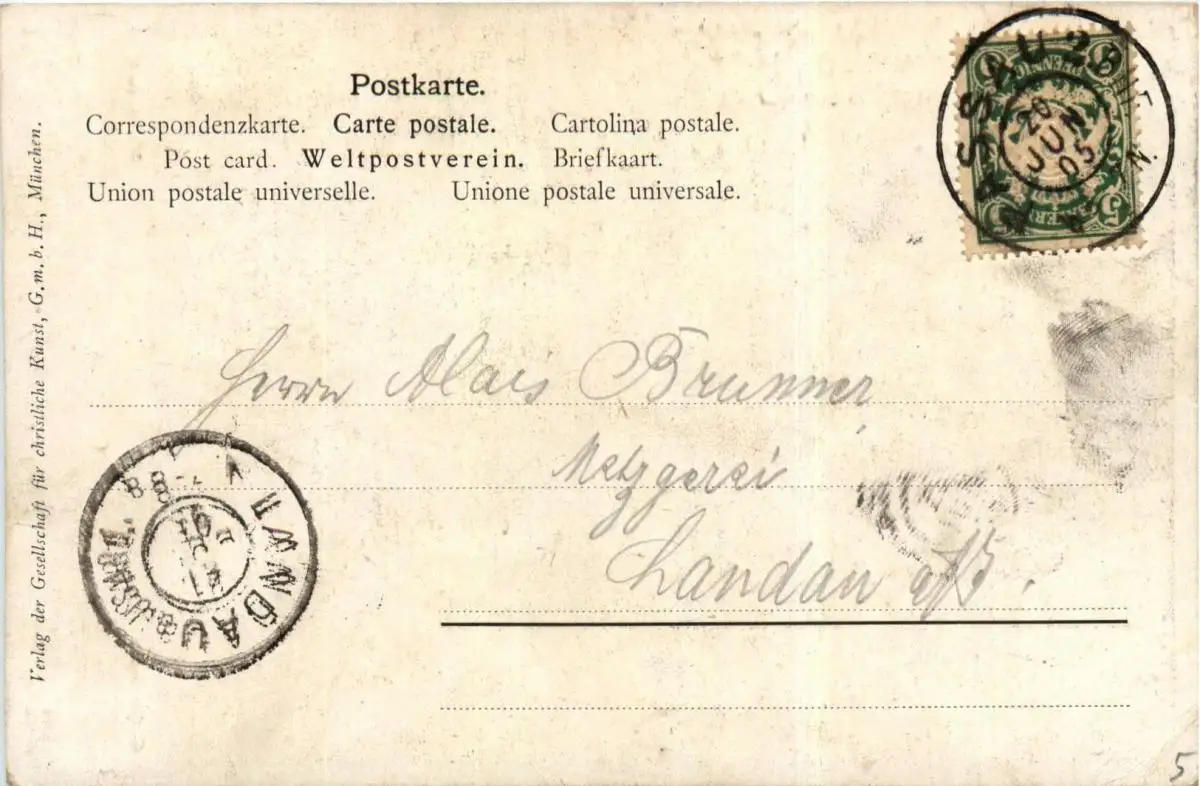 Postkarte.
Correspondenzkarte. Carte postale. Cartolina postale.
Post card. Weltpostverein. Briefkaart.
Union postale universelle. Unione postale universale.
Verlag der Gesellschaft für christliche Kunst, G.m.b.H., München.
PASSAU 2
20
JUN
05
5 5
Herrn Alois Brunner
Metzgerei
Landau a/I.
LANDAU
5